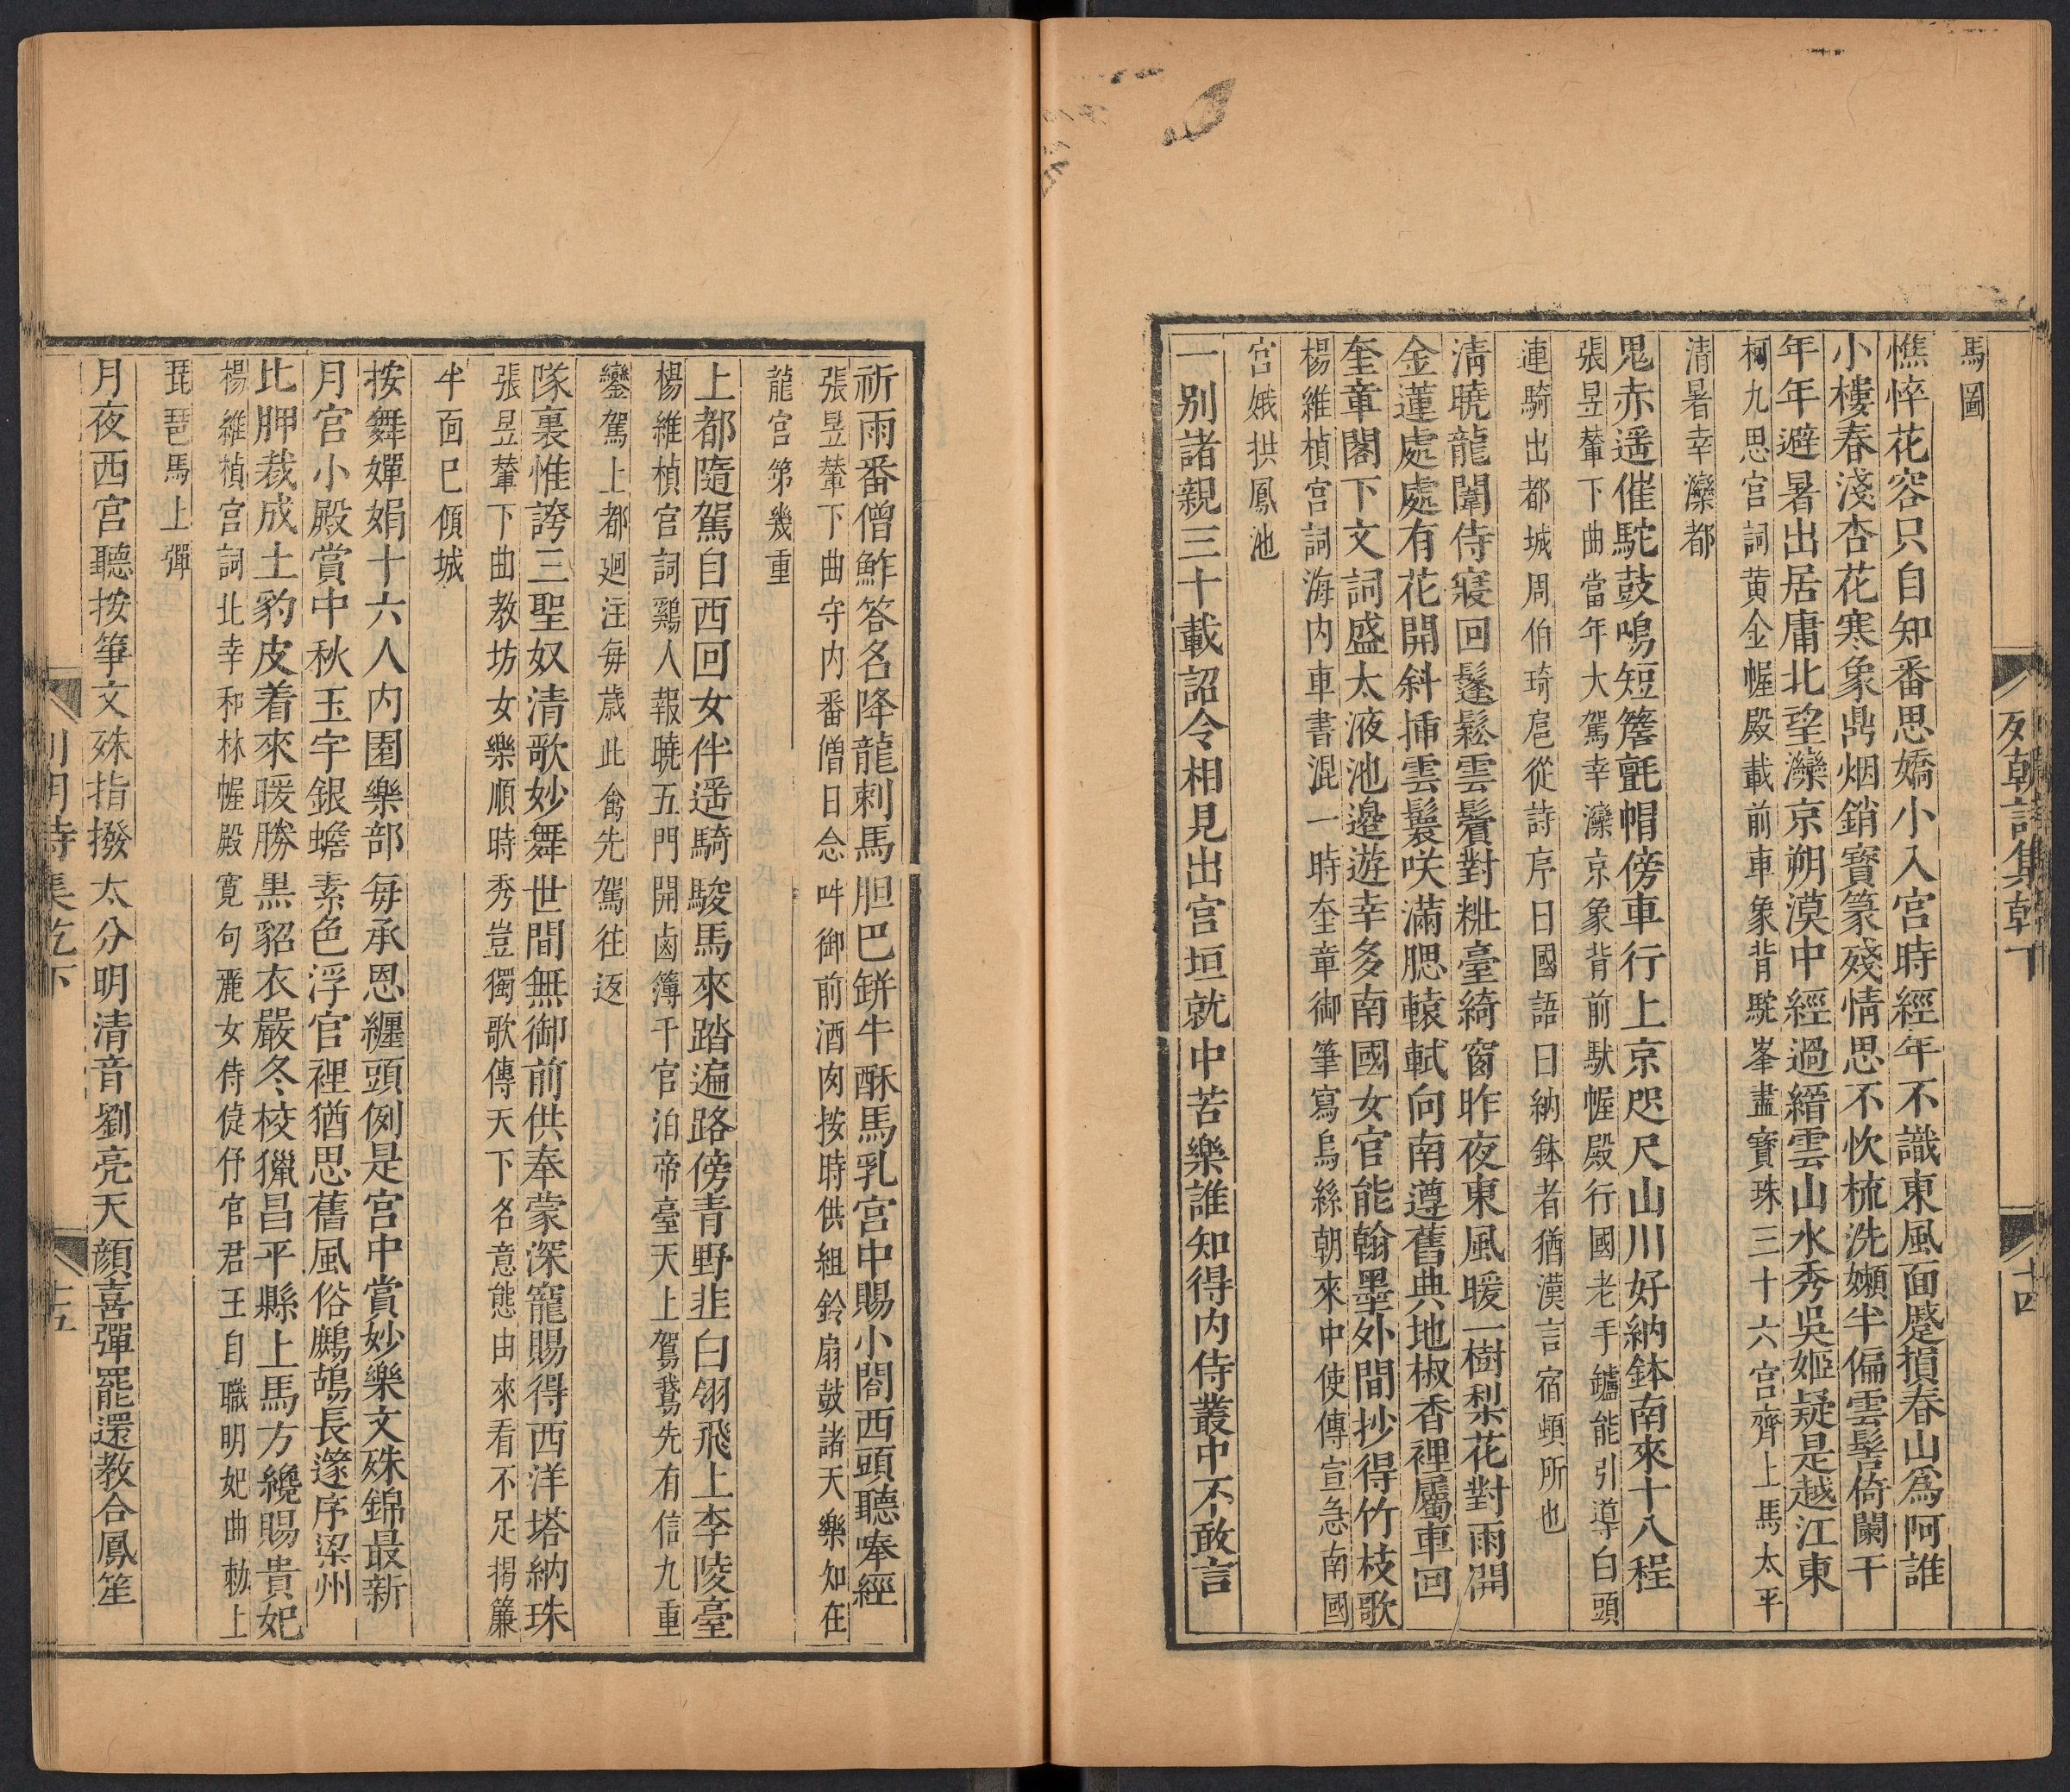 列朝詩集乾下
十四
馬圖
憔悴花容只自知番思嬌小入宮時經年不識東風面蹙損春山爲阿誰
小樓春淺杏花寒象鼎烟銷寶篆殘情思不忺梳洗嬾半偏雲髻倚闌干
年年避暑出居庸北望灤京朔漠中經過縉雲山水秀吳姬疑是越江東
柯九思宮詞黃金幄殿載前車象背駝峯盡寶珠三十六宮齊上馬太平
清暑幸灤都
鬼赤遥催駝鼓鳴短簷氊帽傍車行上京咫尺山川好納鉢南來十八程
張昱輦下曲當年大駕幸灤京象背前馱幄殿行國老手鑪能引導白頭
連騎出都城周伯琦扈從詩序日國語日納鉢者猶漢言宿頓所也
清曉龍闈侍寢回鬔鬆雲鬢對粧臺綺窗昨夜東風暖一樹梨花對雨開
金蓮處處有花開斜揷雲鬟咲滿腮轅軾向南遵舊典地椒香裡屬車回
奎章閣下文詞盛太液池邊遊幸多南國女官能翰墨外間抄得竹枝歌
楊維楨宮詞海内車書混一時奎章御筆寫烏絲朝來中使傳宣急南國
宮娥拱鳳池
一别諸親三十載詔令相見出宮垣就中苦樂誰知得内侍叢中不敢言
祈雨番僧鮓答名降龍刺馬胆巴缾牛酥馬乳宮中賜小閤西頭聽唪經
張昱輦下曲守内番僧日念吽御前酒肉按時供組鈴扇鼓諸天樂知在
龍宮第幾重
上都隨駕自西回女伴遥騎駿馬來踏遍路傍青野韭白翎飛上李陵臺
楊維楨宮詞鷄人報曉五門開鹵簿千官泊帝臺天上駕鵞先有信九重
鑾駕上都廻注每歳此禽先駕往返
隊裏惟誇三聖奴清歌妙舞世間無御前供奉蒙深寵賜得西洋塔納珠
張昱輦下曲教坊女樂順時秀豈獨歌傳天下名意態由來看不足揭簾
半面已傾城
按舞嬋娟十六人内園樂部每承恩纏頭例是宮中賞妙樂文殊錦最新
月宮小殿賞中秋玉宇銀蟾素色浮官裡猶思舊風俗鷓鴣長篴序梁州
比胛裁成土豹皮着來暖勝黒貂衣嚴冬校獵昌平縣上馬方纔賜貴妃
楊維楨宮詞北幸和林幄殿寛句麗女侍倢伃官君王自職明妃曲勅上
琵琶馬上彈
月夜西宮聽按箏文殊指撥太分明清音劉亮天顔喜彈罷還教合鳳笙
列朝詩集乾下
十五